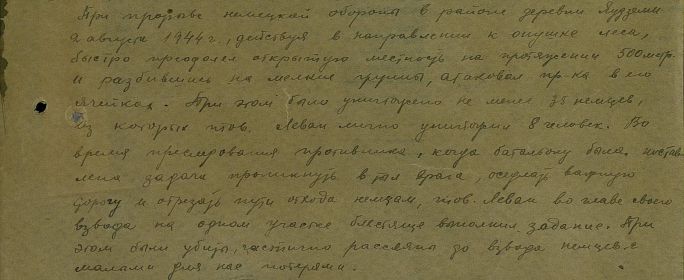 При прорыве немецкой обороны в районе деревни
2 августа 1944 г., действуя в направлении к опушке леса,
быстро преодолел открытую местность на протяжении 500 метр.
и разбившись на мелкие группы, атаковал пр-ка в его
ячейках. При этом было уничтожено не менее 35 немцев,
из которых тов. Леван лично уничтожил 8 человек. Во
время преследования противника, когда батальону была постав-
лена задача проникнуть в тыл врага, оседлать важную
дорогу и отрезать пути отхода немцам, тов. Леван во главе своего
взвода на одном участке блестяще выполнил задание. При
этом были убиты, частично рассеяны до взвода немцев с
малыми для нас потерями.